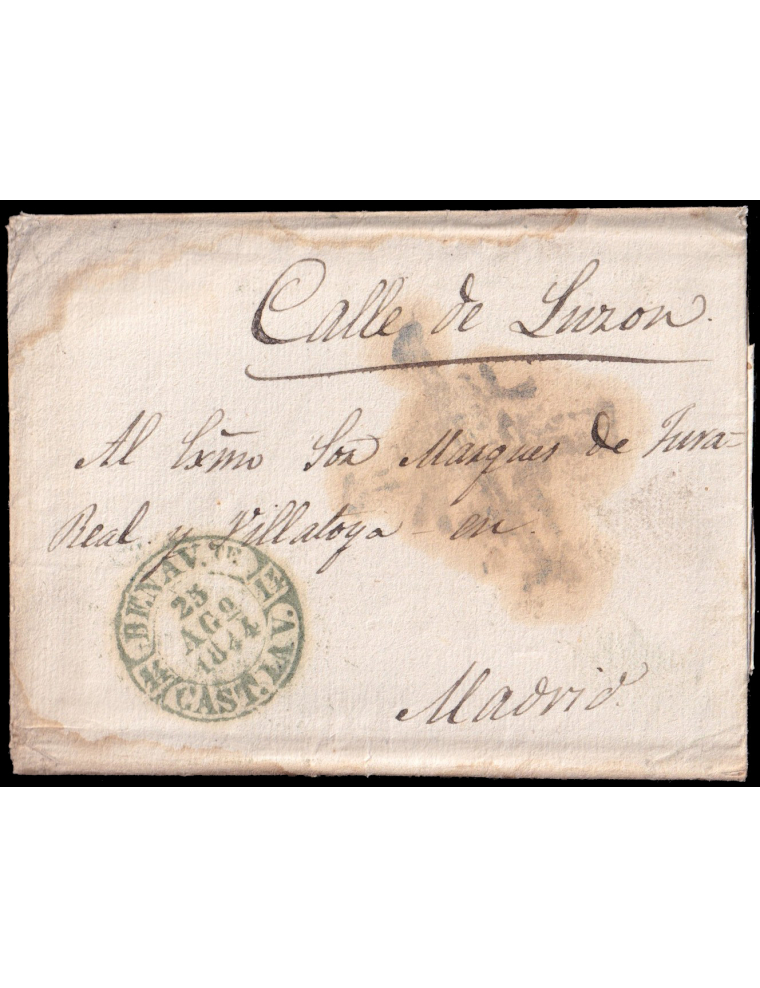 Calle de Luzon.
Al Exmo Sor Marques de Jura=
Real y Villatoya en
BENAV.TE
25
AGO
1844
CAST. LA V.
Madrid.